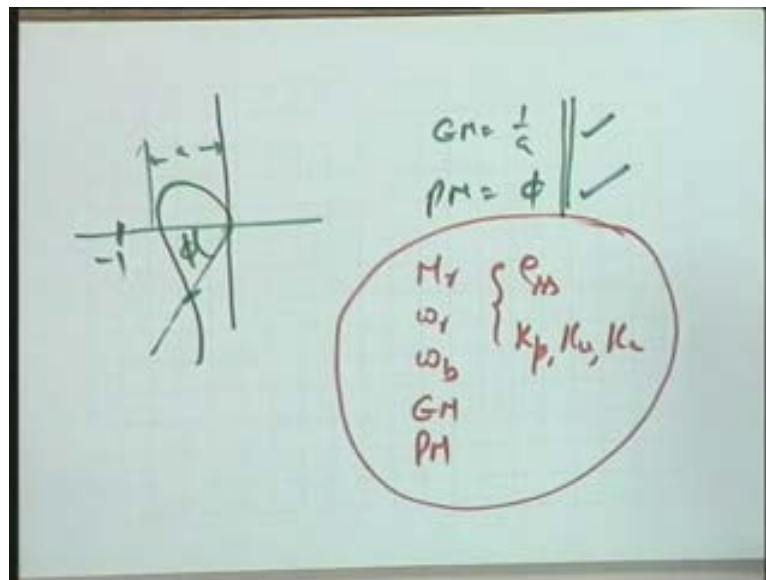 a
-1
φ
GM = 1/a ✓
PM = φ ✓
Mr
ωr
ωb
GM
PM
ess
Kp, Kv, Ka